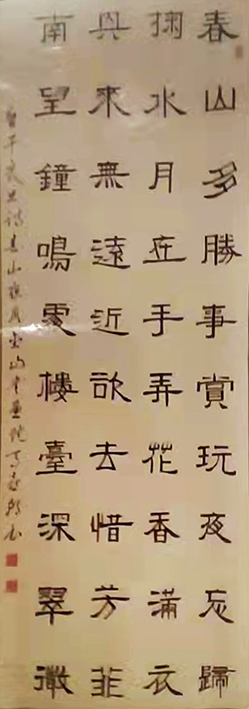 春山多勝事賞玩夜忘歸
掬水月在手弄花香滿衣
興來無遠近欲去惜芳菲
南望鐘鳴處樓臺深翠微
于良史詩春山夜月